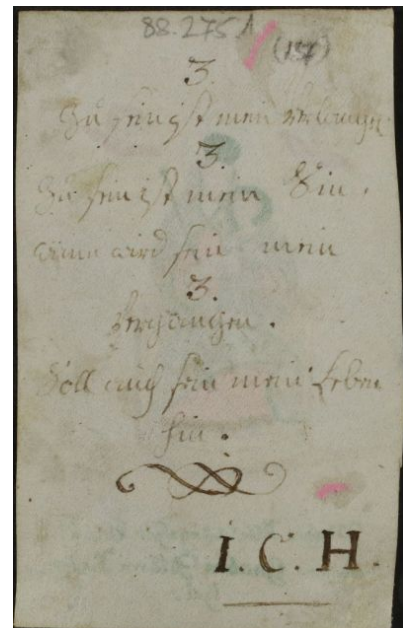 88.275 A
(157)
3.
Zu sein ist mein Verlangen
3.
Zu sein ist mein Sin.
wird sein mein
3.
Vergangen.
Soll auch sein mein Leben
hin.
I. C. H.